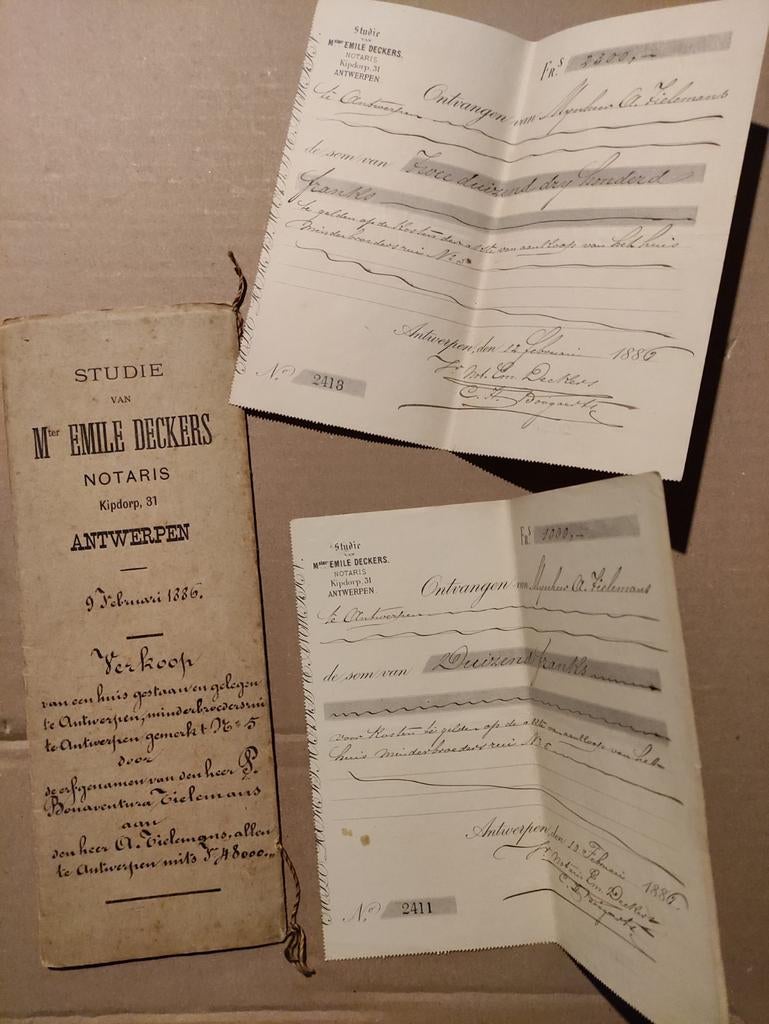 STUDIE
VAN
Mter EMILE DECKERS
NOTARIS
Kipdorp, 31
ANTWERPEN
9 Februari 1886.
Verkoop
van een huis gestaan en gelegen
te Antwerpen, minderbroedersrui
te Antwerpen gemerkt No 5
door
de erfgenamen van den heer P.
Bonaventura Tielemans
aan
den heer A. Tielemans, allen
te Antwerpen mits Fr 48000,,
Studie
VAN
Mter EMILE DECKERS.
NOTARIS
Kipdorp, 31
ANTWERPEN
FR.S 2300,-
Ontvangen van Mynheer A. Tielemans
te Antwerpen
de som van Twee duizend dry honderd
franks
te gelden op de kosten der akte van aankoop van het huis
minderbroedersrui No 5
Antwerpen, den 12 Februari 1886
Not. Em. Deckers
No 2413
Studie
VAN
Mter EMILE DECKERS.
NOTARIS
Kipdorp, 31
ANTWERPEN.
FR.S 1000,-
Ontvangen van Mynheer A. Tielemans
te Antwerpen
de som van Duizend franks
voor kosten te gelden op de akte van aankoop van het
huis minderbroedersrui No 5
Antwerpen, den 12 Februari 1886.
Em. Deckers
No 2411